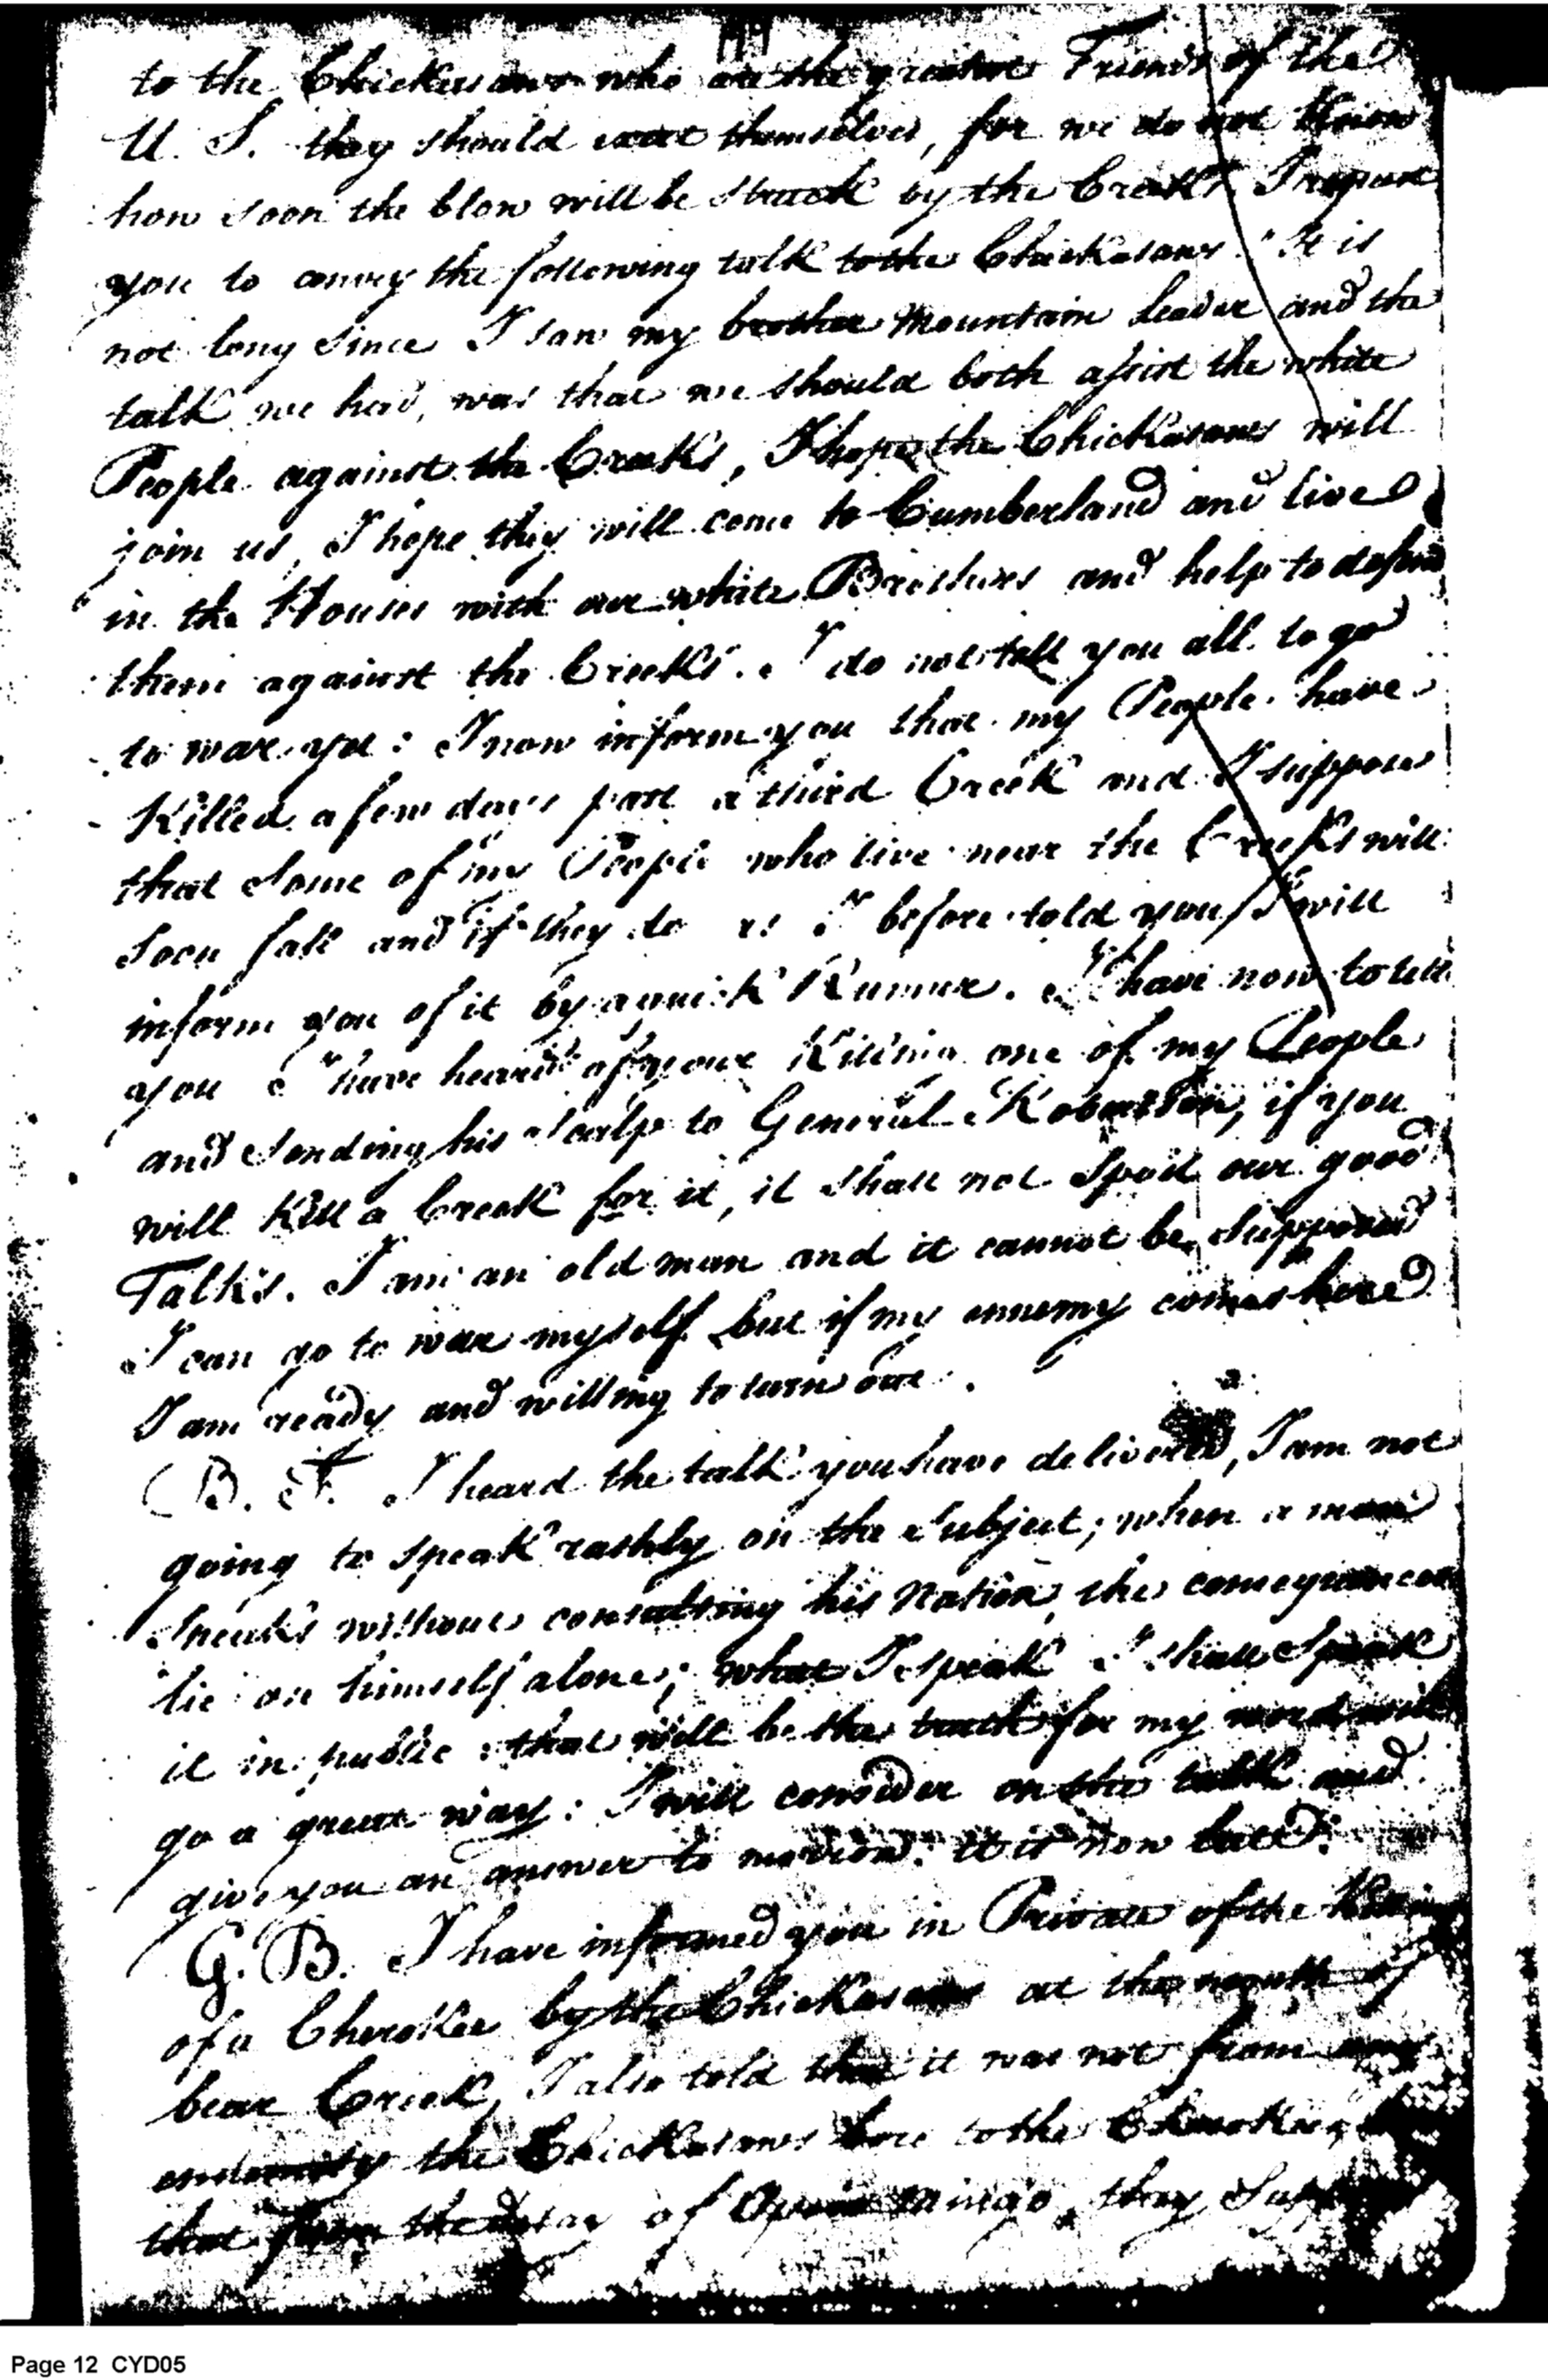 199
to the Chickasaws who are the greatest Friends of the
U. S. they should exert themselves, for we do not Know
how soon the blow will be Struck by the Creeks I request
you to convey the following talk to the Chickasaws. "It is
not long Since I saw my brother Mountain Leader and the
talk we had, was that we Should both assist the white
People against the Creeks, I hope the Chickasaws will
join us, I hope they will come to Cumberland and live
in the Houses with our white Brothers and help to defend
them against the Creeks. I do not tell you all to go
to war yet: I now inform you that my People have
Killed a few days past a third Creek and I suppose
that Some of my People who live near the Creeks will
Soon fall and if they do as I before told you I will
inform you of it by a quick Runner. I have now to tell
you I have heard of your Killing one of my People
and Sending his Scalp to General Robertson, if you
will Kill a Creek for it, it Shall not Spoil our good
Talks. I am an old man and it cannot be Supposed
I can go to war myself but if my ennemy comes here
I am ready and willing to turn out.
B. F. I heard the talk you have delivered, I am not
going to Speak rashly on the Subject; when a man
Speaks without consulting his Nation, the consequences
lie on himself alone; what I Speak I Shall Speak
it in public: that will be the truth for my word will
go a great way: I will consider on the talk and
give you an answer to morrow: it is now late.
G. B. I have informed you in Private of the Killing
of a Cherokee by the Chickasaws at the mouth of
bear Creek, I also told that it was not from any
the Chickasaws bore to the Cherokees,
that from the delay of Mingo, they
Page 12 CYD05